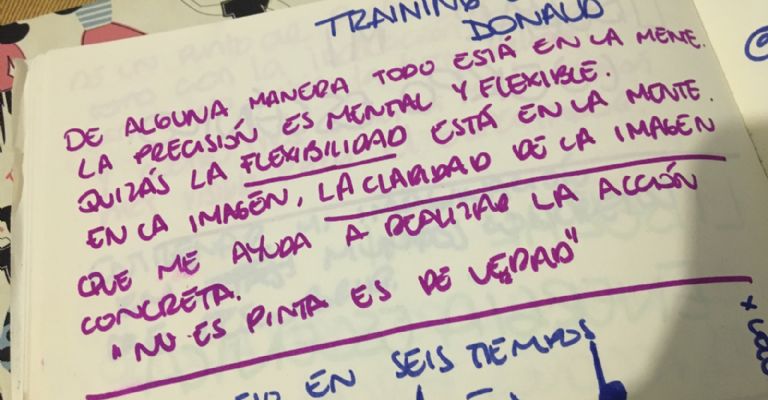 TRAINING
DONALD
DE ALGUNA MANERA TODO ESTÁ EN LA MENE.
LA PRECISIÓN ES MENTAL Y FLEXIBLE.
QUIZÁS LA FLEXIBILIDAD ESTÁ EN LA MENTE.
EN LA IMAGEN, LA CLARIDAD DE LA IMAGEN
QUE ME AYUDA A REALIZAR LA ACCIÓN
CONCRETA.
"NO ES PINTA ES DE VERDAD"
EN SEIS TIEMPOS